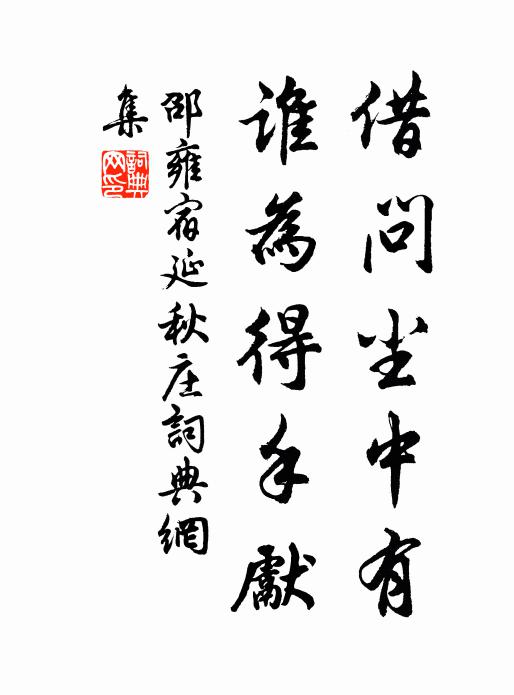 借問尘中有
誰為得手獻
邵雍宿延秋庄詞典網
集
詞典
网印